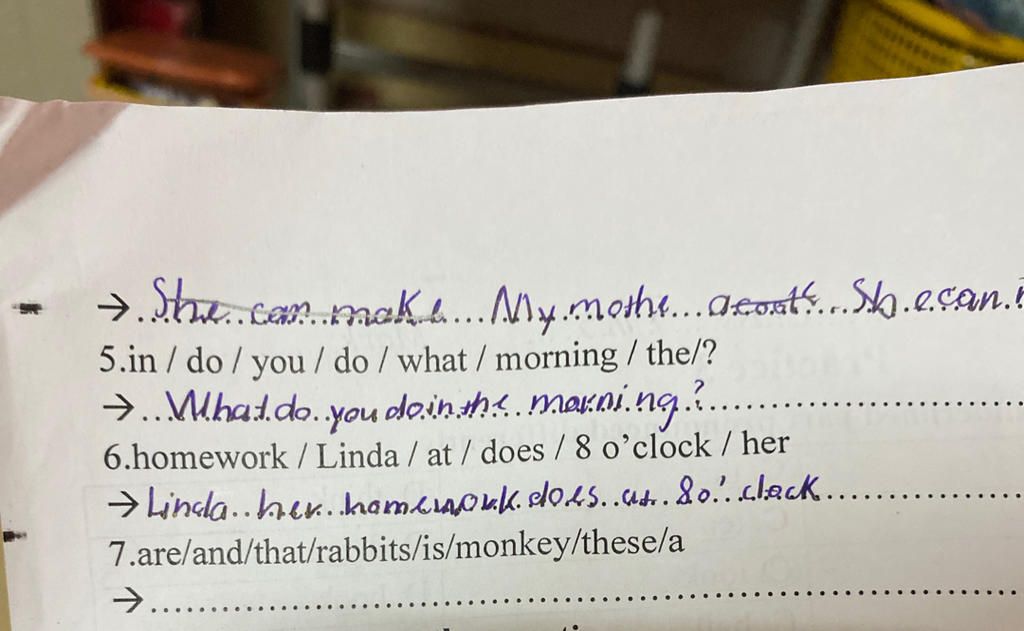 → She can make My mothe a couts Sh.e can
5.in / do / you / do / what / morning / the/?
→ What do you do in the morning?
6.homework / Linda / at / does / 8 o’clock / her
→ Linda her homework does at 8 o' clock
7.are/and/that/rabbits/is/monkey/these/a
→